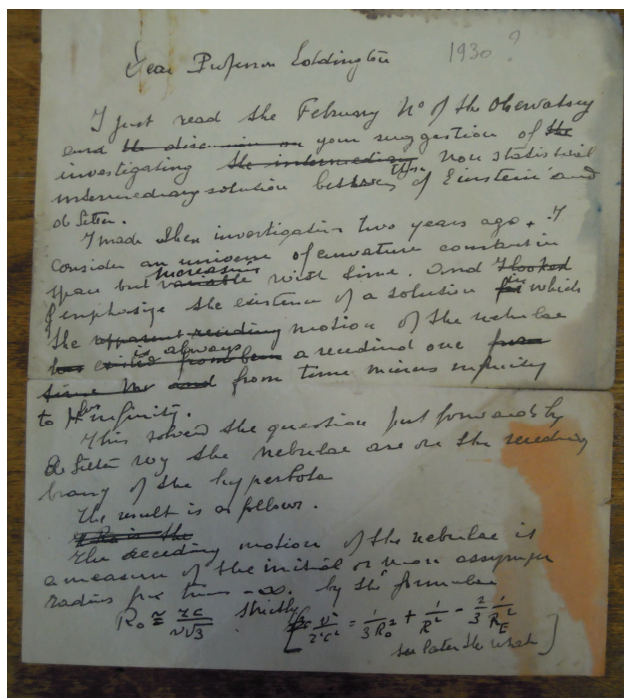 Dear Professor Eddington 1930 ?
I just read the February N° of the Observatory
and the discussion on your suggestion of the
investigating the intermediary non statistical
intermediary solution between those of Einstein and
de Sitter.
I made these investigations two years ago. I
consider an universe of curvature constant in
space but variable increasing with time. And I looked
I emphasize the existence of a solution for in which
the apparent receeding motion of the nebulae
is always a receeding one from
time from time minus infinity
to plus infinity.
This solved the question put forwards by
de Sitter wy the nebulae are on the receeding
brang of the hyperbola
The result is as follows.
The receeding motion of the nebulae is
a measure of the initial or more
radius for time -∞. by the formulae
R₀ ≅ rc/v√3 strictly [ v²/r²c² = 1/3R₀² + 1/R² - 2/3 1/R_E²
see later the what ]